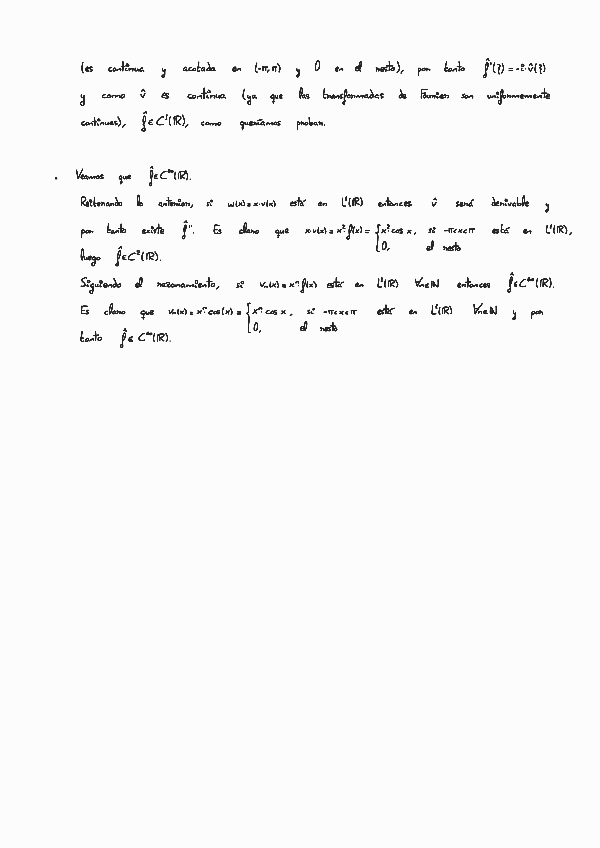 (es continua y acotada en (-π,π) y 0 en el resto), por tanto f̂'(ξ) = -i·v̂(ξ)
y como v̂ es continua (ya que las transformadas de Fourier son uniformemente
continuas), f̂ ∈ C¹(ℝ), como queríamos probar.
• Veamos que f̂ ∈ C^∞(ℝ).
Reiterando lo anterior, si w(x) = x·v(x) está en L¹(ℝ) entonces v̂ será derivable y
por tanto existe f̂''. Es claro que x·v(x) = x² f(x) = { x² cos x, si -π<x<π está en L¹(ℝ),
0, el resto
luego f̂ ∈ C²(ℝ).
Siguiendo el razonamiento, si vₙ(x) = xⁿ f(x) está en L¹(ℝ) ∀n∈ℕ entonces f̂ ∈ C^∞(ℝ).
Es claro que vₙ(x) = xⁿ cos(x) = { xⁿ cos x, si -π<x<π está en L¹(ℝ) ∀n∈ℕ y por
0, el resto
tanto f̂ ∈ C^∞(ℝ).